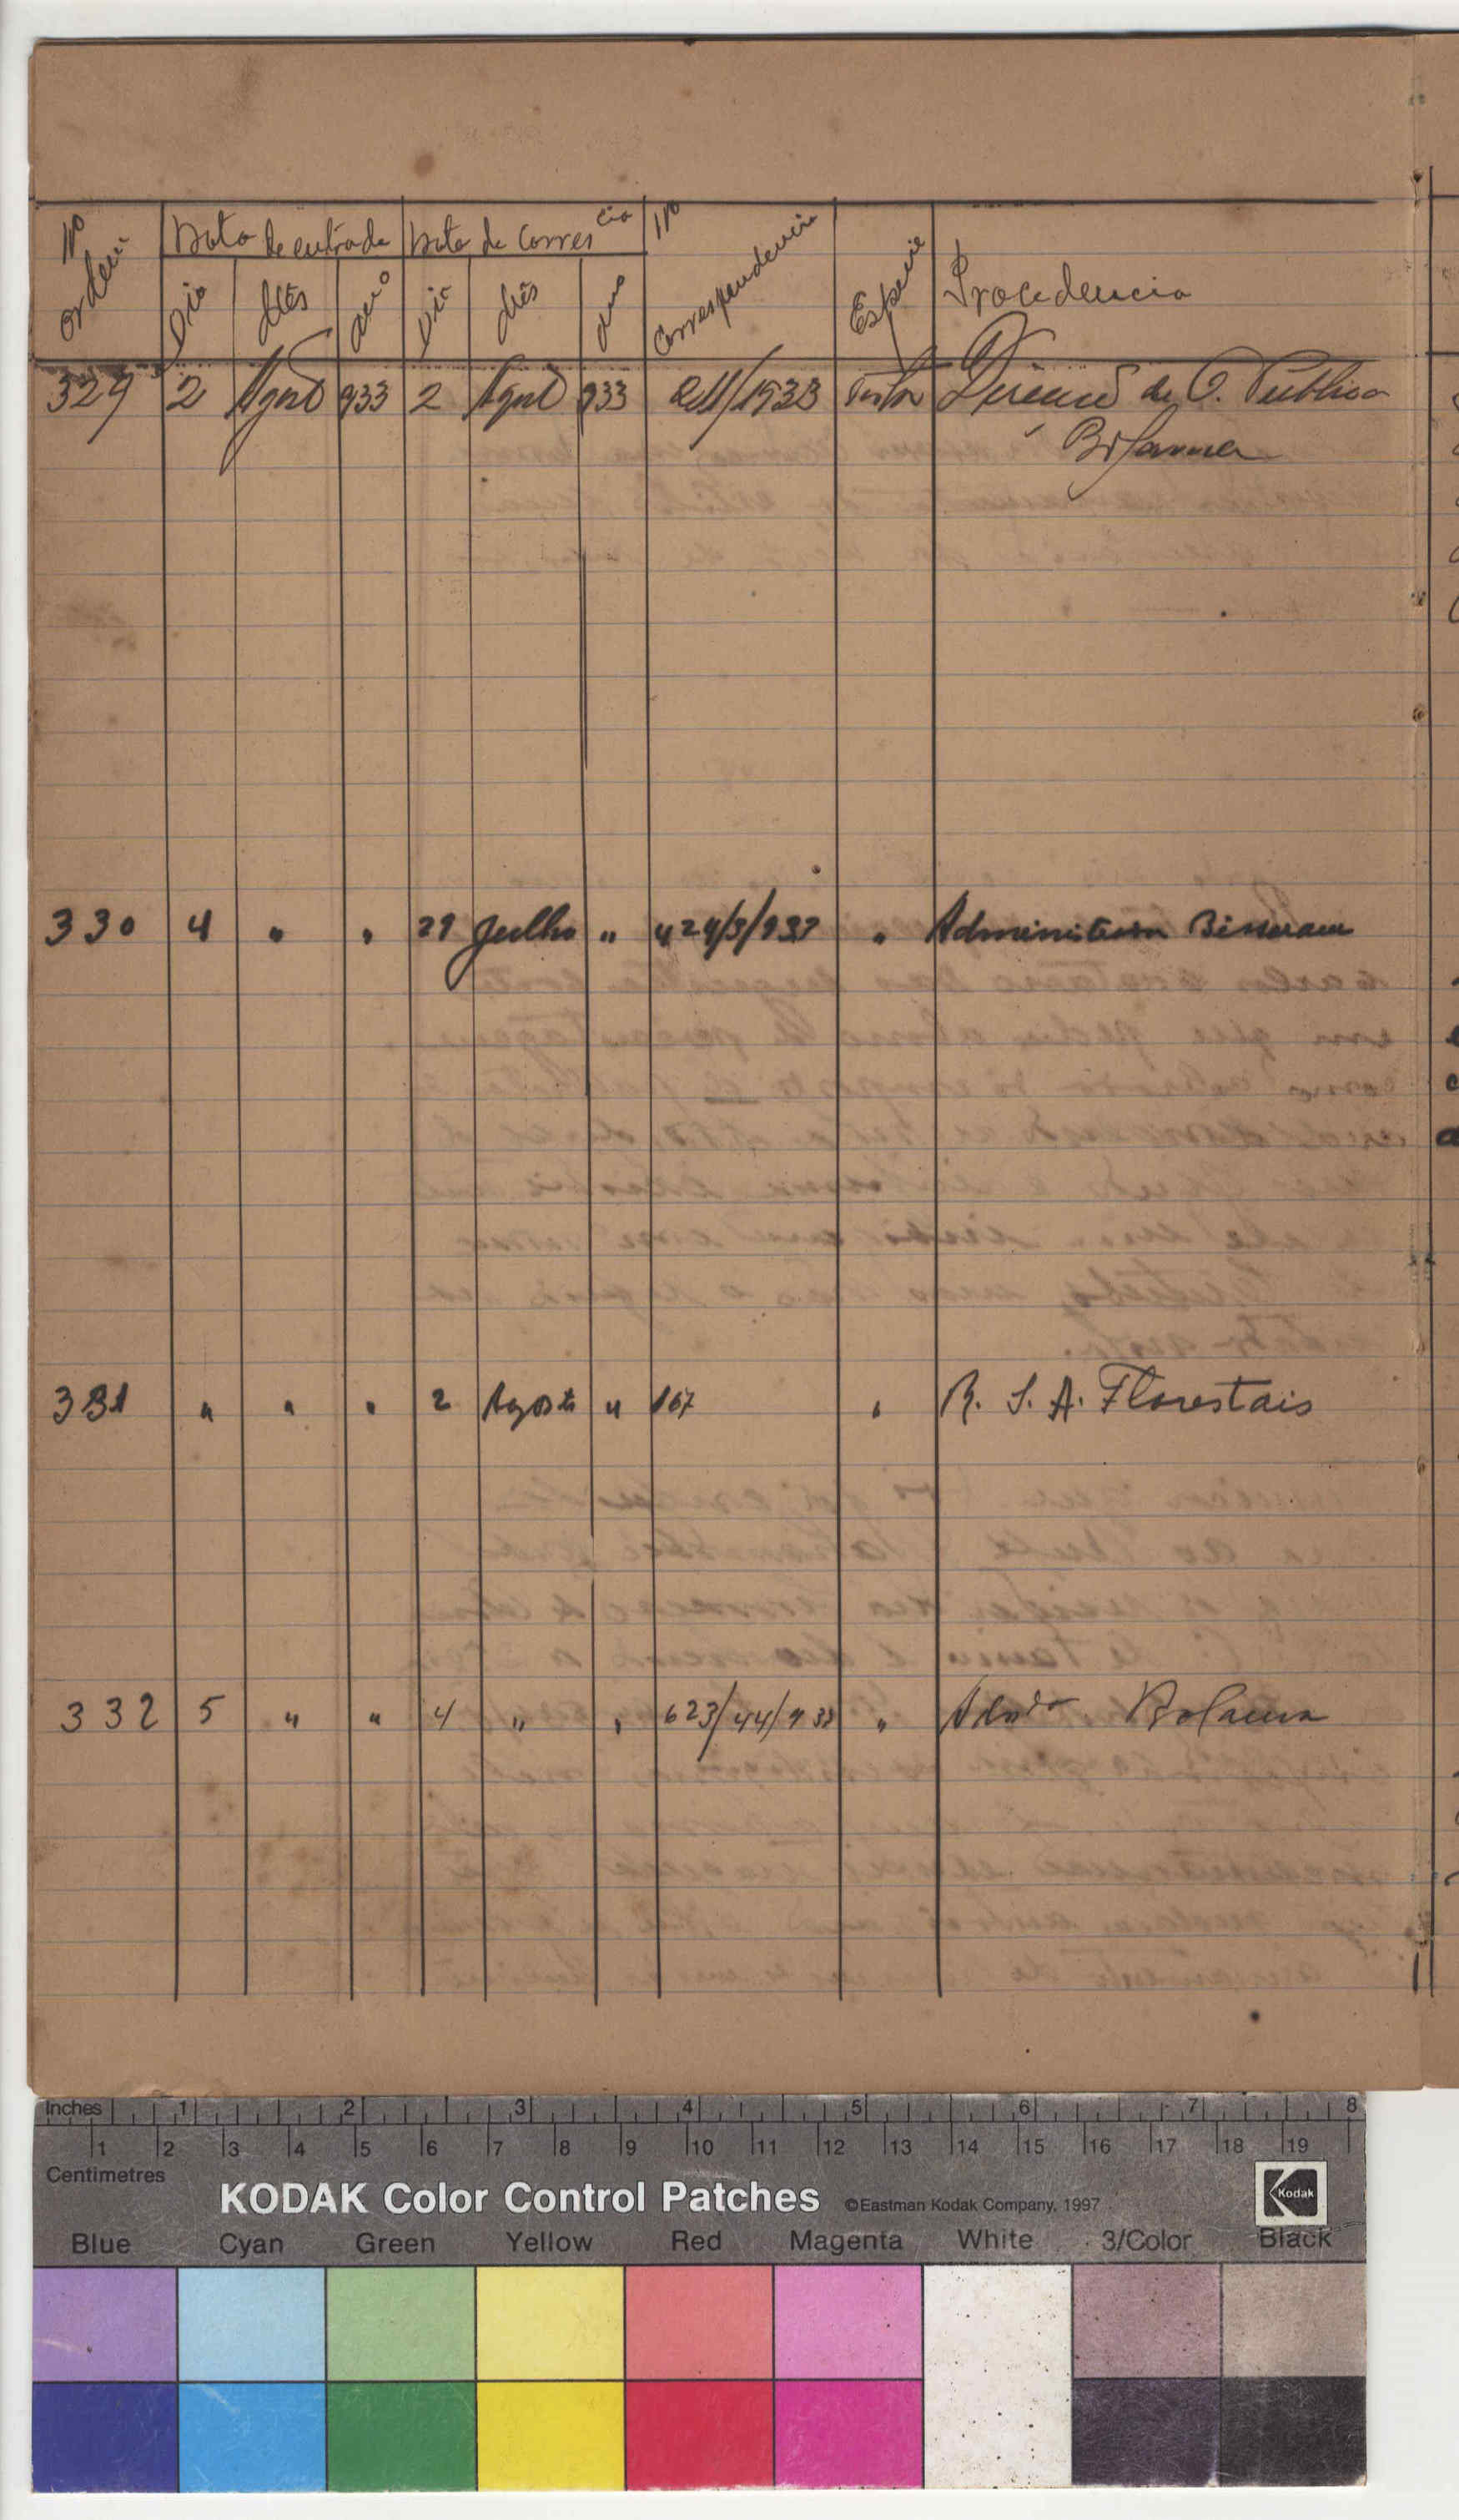 Nº ordem Data de entrada Data de corres cia Nº correspondencia Especie Procedencia
Dia Mês ano Dia Mês ano
329 2 Agost 933 2 Agost 933 /1933 de O. Publica
Bolama
330 4 " " 29 Julho " 424/3/933 " Administração Bissau
331 " " " 2 Agosto " 167 " R. S. A. Florestais
332 5 " " 4 " " 623/44/933 " Bolama
Inches 1 2 3 4 5 6 7 8
1 2 3 4 5 6 7 8 9 10 11 12 13 14 15 16 17 18 19
Centimetres
KODAK Color Control Patches ©Eastman Kodak Company, 1997 Kodak
Blue Cyan Green Yellow Red Magenta White 3/Color Black